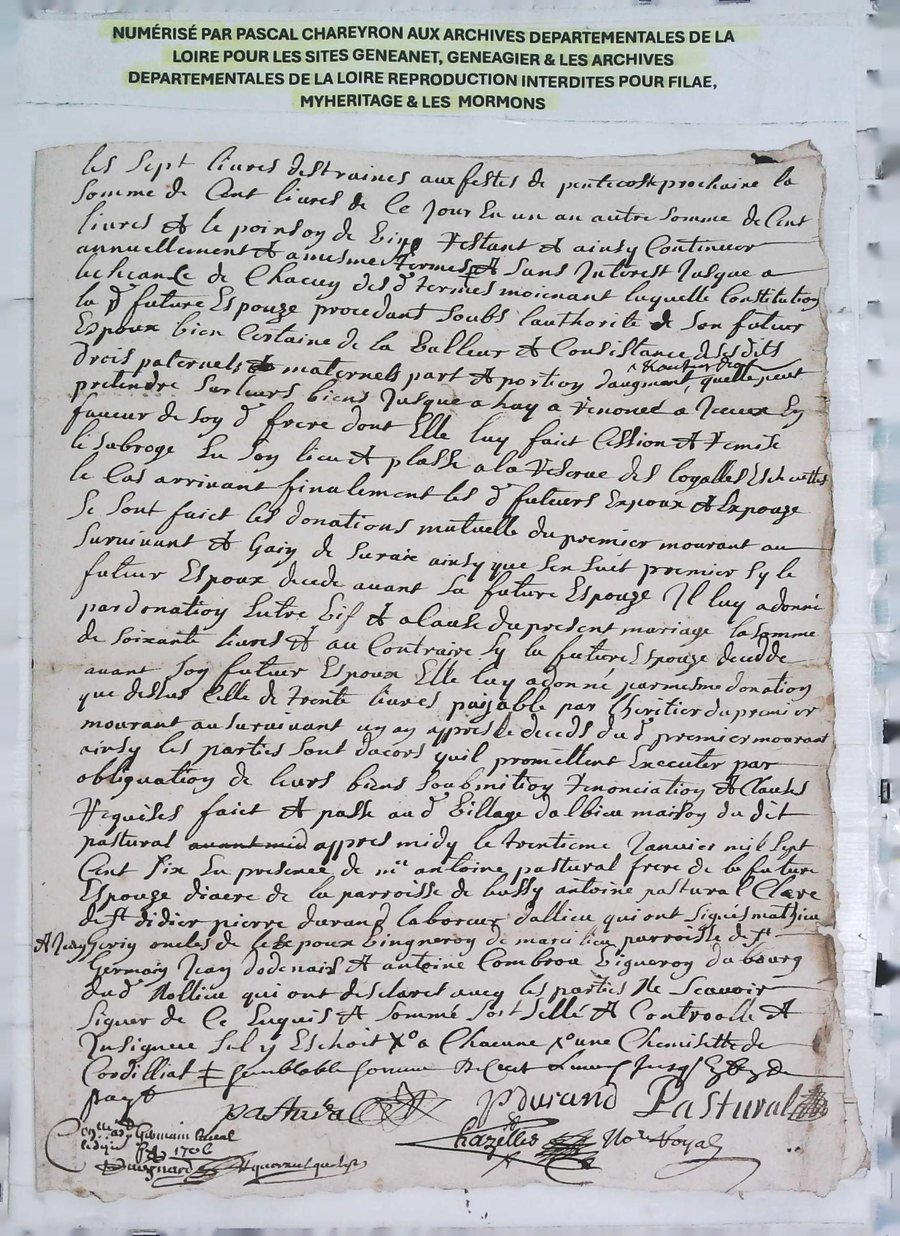 NUMÉRISÉ PAR PASCAL CHAREYRON AUX ARCHIVES DEPARTEMENTALES DE LA
LOIRE POUR LES SITES GENEANET, GENEAGIER & LES ARCHIVES
DEPARTEMENTALES DE LA LOIRE REPRODUCTION INTERDITES POUR FILAE,
MYHERITAGE & LES MORMONS
les sept livres destraines aux festes de pentecoste prochaine la
somme de Cent livres de Ce jour En un an autre somme de Cent
livres & le poinson de Vin restant & ainsy Continuer
annuellement & a mesme termes & sans Interest jusque a
lescheance de Chacun des d termes moienant laquelle Constitution
la d future Espouze procedant soubs lauthorité de son futur
Espoux bien Certaine de la Valleur & Consistance desdits
drois paternels & maternels part & portion daugment quelle peut
pretendre sur leurs biens jusque a huy a renoncé a Iceux En
faveur de son d frere dont Elle luy faict Cession & remise
le subroge En son lieu & plasse a la reserve des loyalles Escheuttes
le Cas arrivant finalement les d futurs Espoux & Espouze
se sont faict les donations mutuelle du premier mourant au
survivant & Gain de survie ainsy que sen suit premier sy le
futur Espoux decede avant sa future Espouze Il luy a donné
par donation Entre Vif & a Cause du present mariage la somme
de soixante livres & au Contraire sy la future Espouze decedde
avant son futur Espoux Elle luy a donné par mesme donation
que dessus Celle de trente livres payable par lheritier du premier
mourant au survivant un an appres le deceds du d premier mourant
ainsy les parties sont dacors quil promettent Executer par
obliguation de leurs biens soubmition renonciation & Clauses
requises faict & passé au d Village dalbieu maison du dit
pastural avant mid appres midy le trentieme Janvier mil sept
Cent six En presence de mr antoine pastural frere de la future
Espouze diacre de la parroisse de bussy antoine pastural Clerc
de st didier pierre durand laboreur dallieu qui ont signés mathieu
& Jean Gerin oncles de lespoux Vingneron de marcilieu parroisse de st
Germain Jean dodenais & antoine Combrou Vigneron du bourg
du d Nollieu qui ont desclaret avecq les parties Ne Scavoir
signer de Ce Enquis & sommé sera sellé & Controollé &
Insigneue sel y Eschoit Xo a Chacune Xo une Chemisette de
Cordilliat semblable somme de Cent
pays
pastural PDurand Pastural
Chazelles Nore Royal
Germain Laval
1706